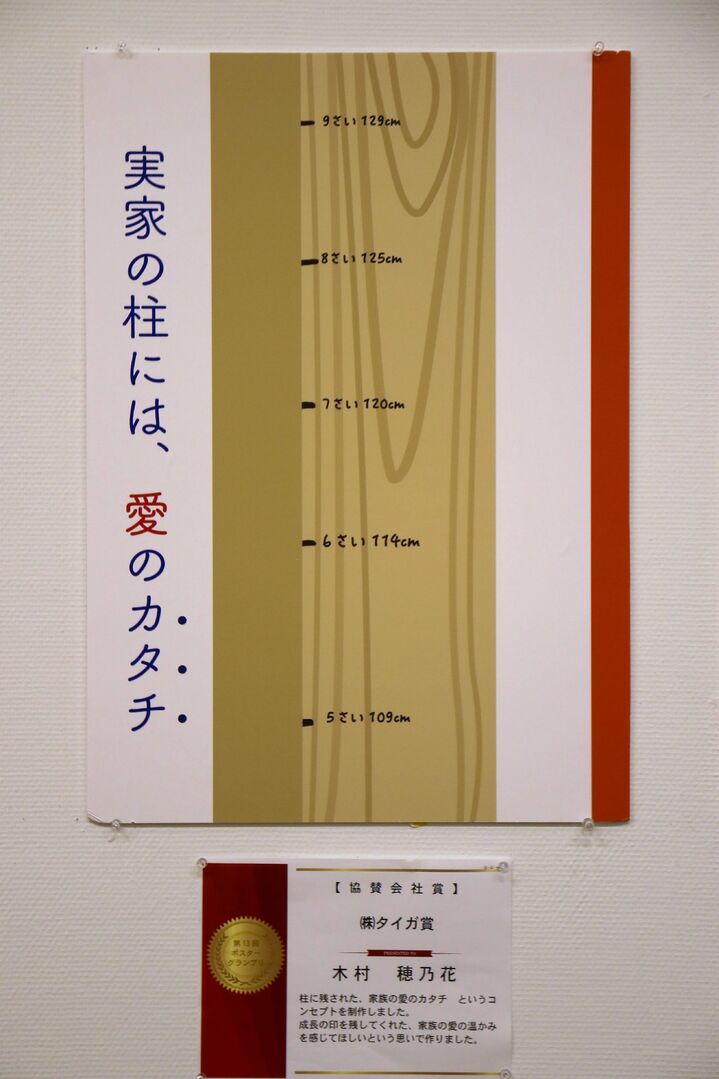 実家の柱には、愛のカタチ
9さい 129cm
8さい 125cm
7さい 120cm
6さい 114cm
5さい 109cm
【協賛会社賞】
㈱タイガ賞
PRESENTED TO
木村 穂乃花
第13回
ポスター
グランプリ
柱に残された、家族の愛のカタチ というコ
ンセプトを制作しました。
成長の印を残してくれた、家族の愛の温かみ
を感じてほしいという思いで作りました。